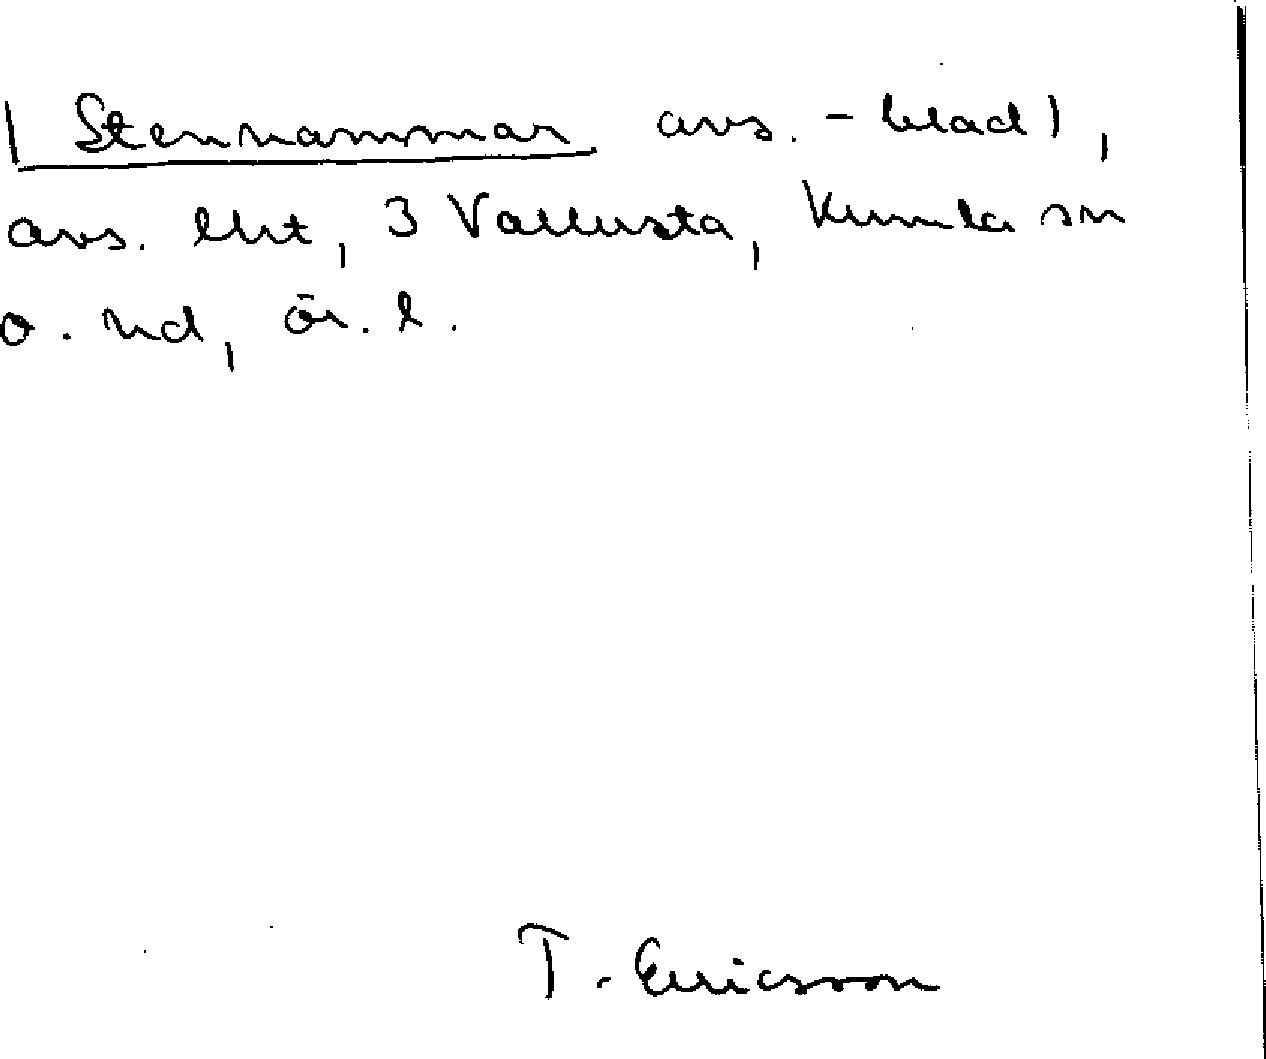 Stenhammar avs. - blad 1,
avs. lht, 3 Vallersta, Kumla sn
o. hd, Ör. l.
T. Ericsson